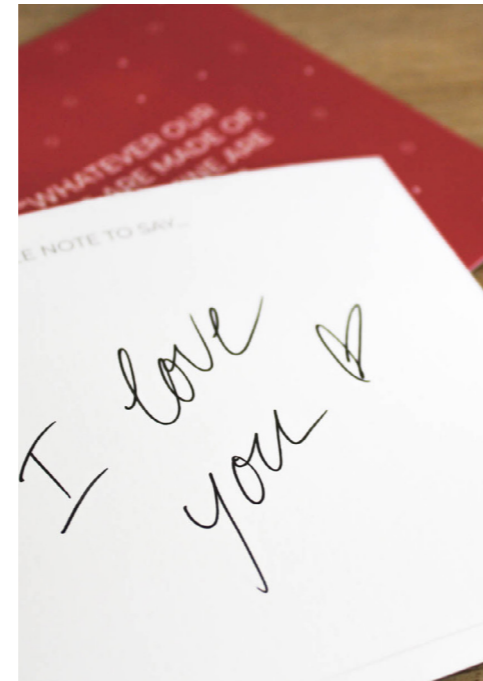 "WHATEVER OUR
ARE MADE OF,
ARE
NOTE TO SAY...
I love
you ♡